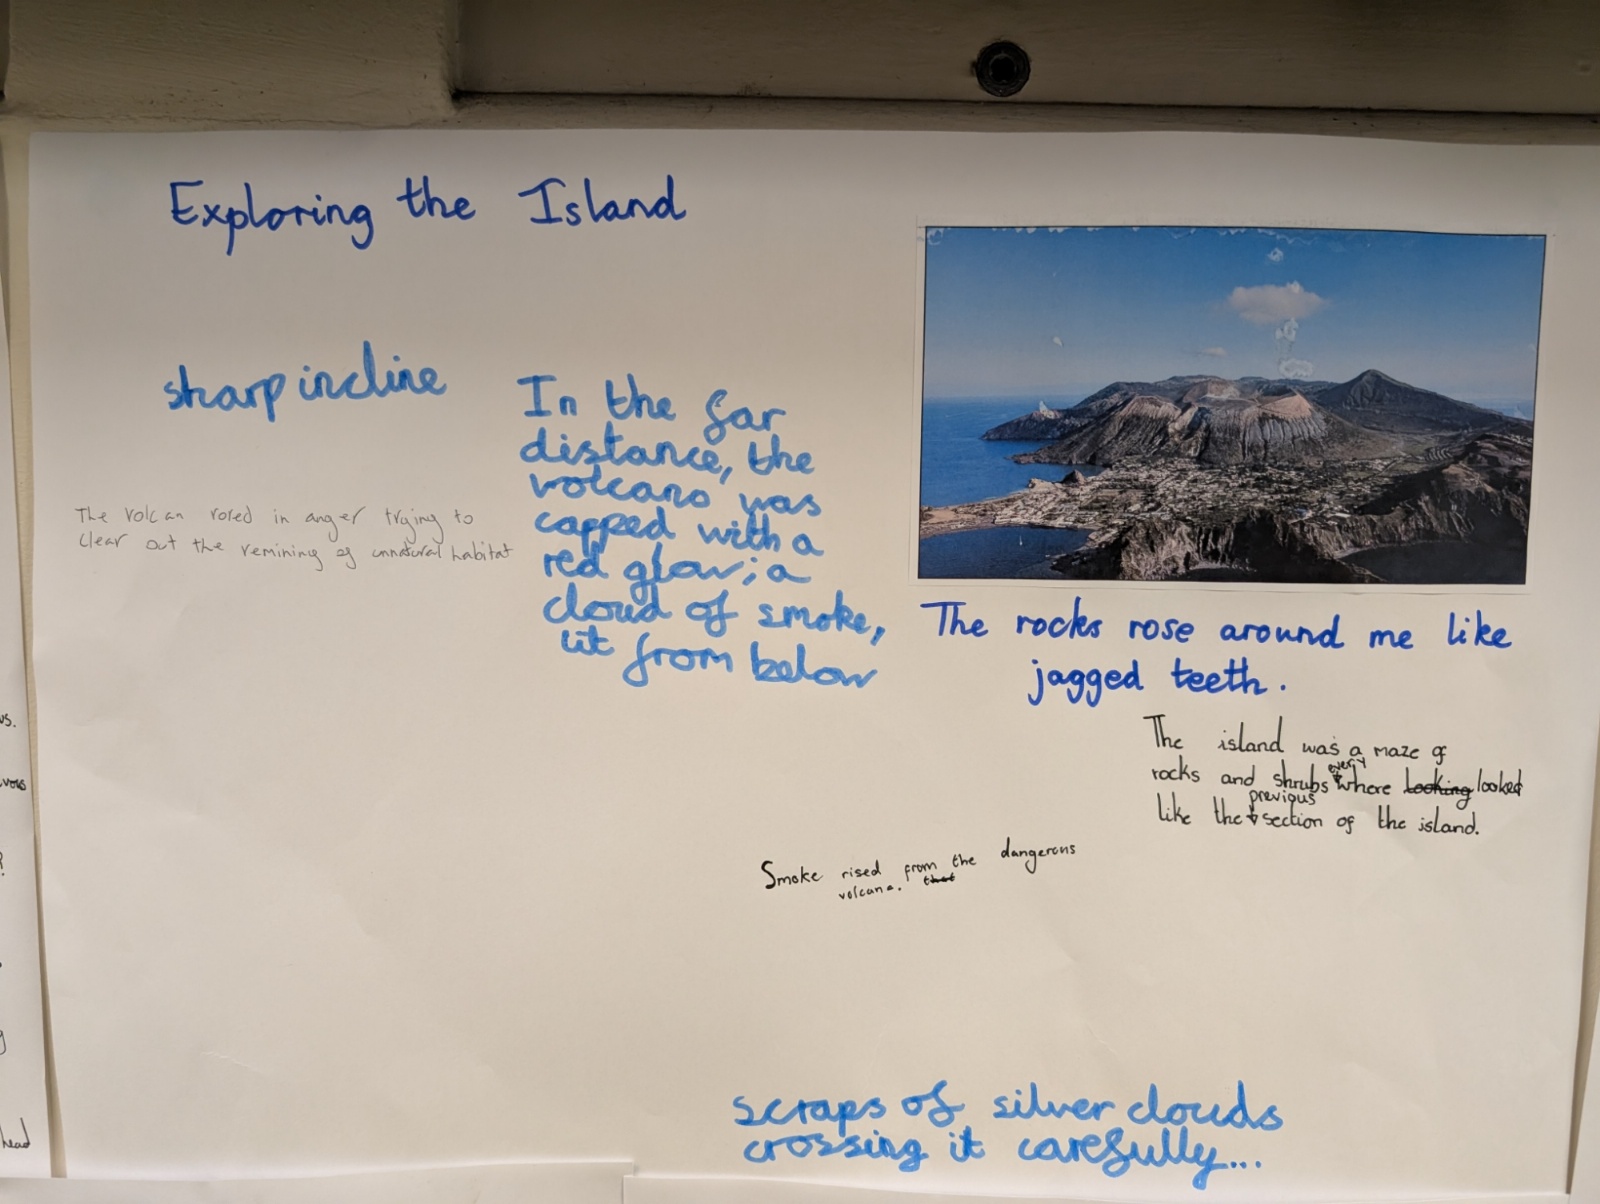 Exploring the Island
sharp incline
In the far
distance, the
volcano was
capped with a
red glow; a
cloud of smoke,
lit from below
The volcan rored in anger trying to
clear out the remining of unnatural habitat
The rocks rose around me like
jagged teeth.
The island was a maze of
rocks and shrubs every where looking looked
like the previous section of the island.
Smoke rised from the dangerous
volcano. that
scraps of silver clouds
crossing it carefully...
head